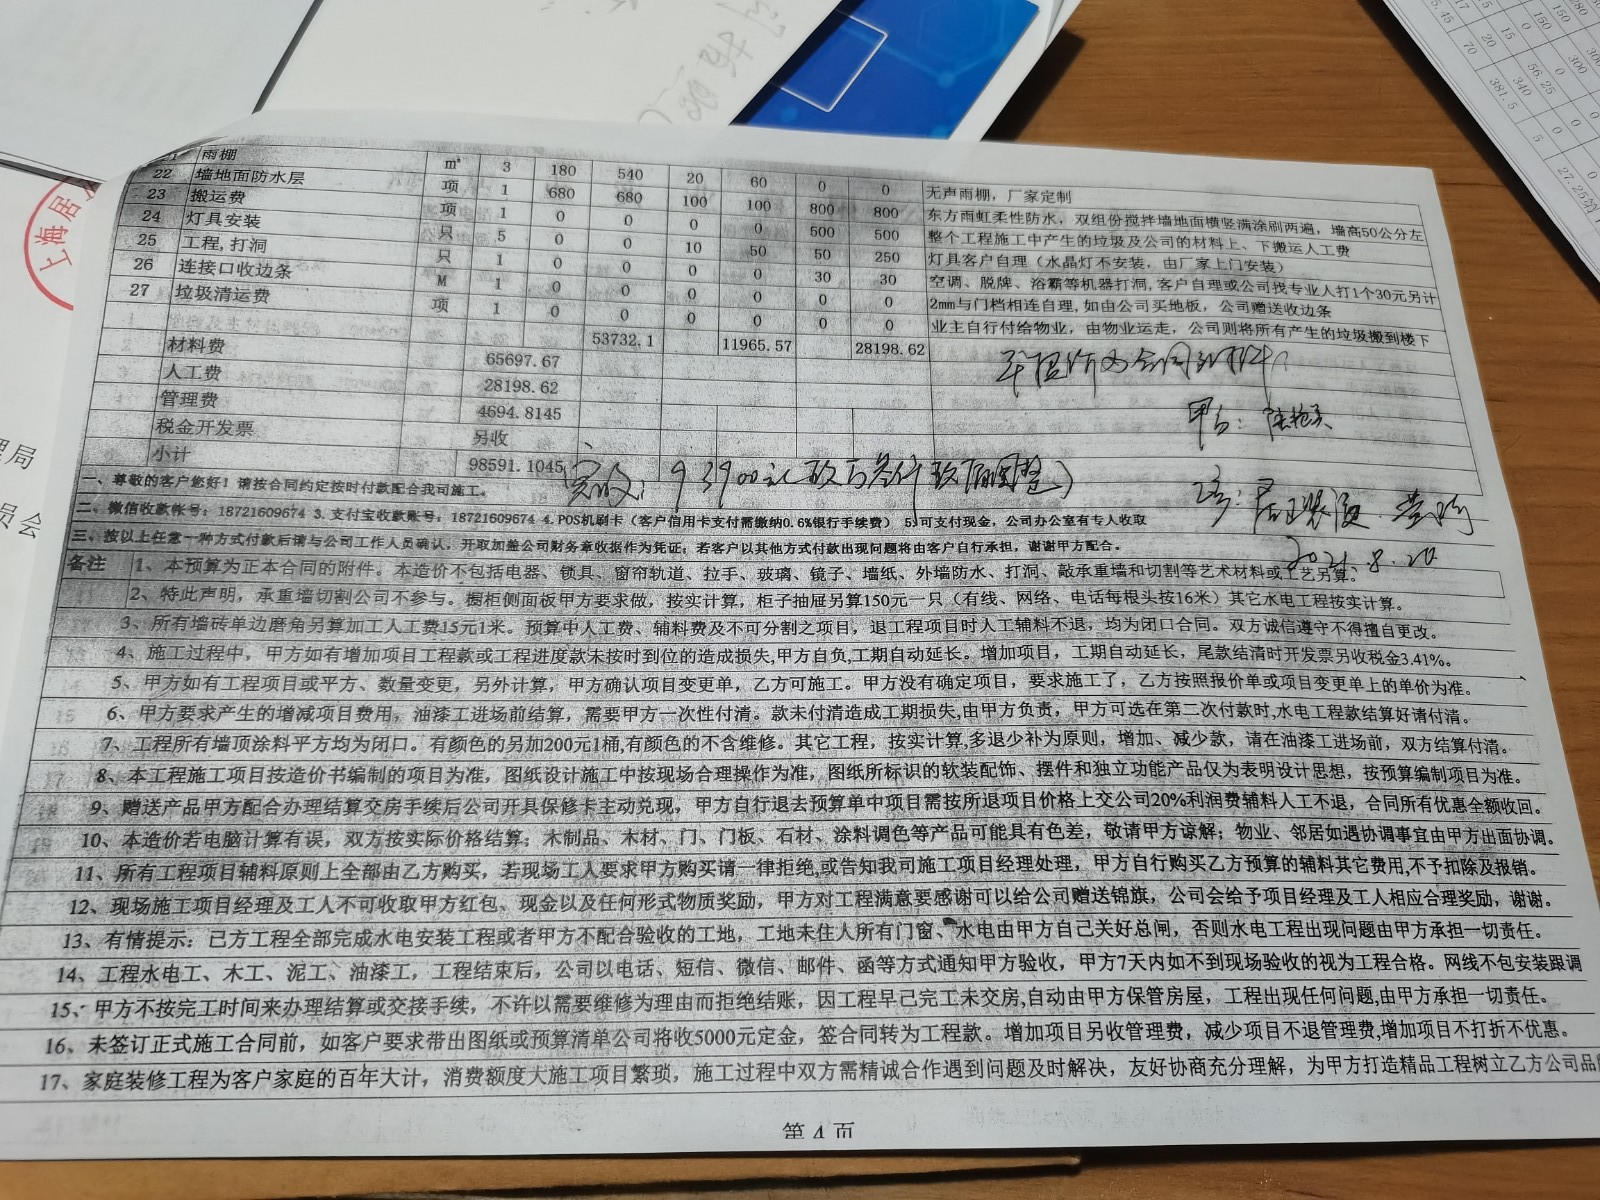 雨棚 m² 3 180 540 20 60 0 0 无声雨棚，厂家定制
22 墙地面防水层 项 1 680 680 100 100 800 800 东方雨虹柔性防水，双组份搅拌墙地面横竖满涂刷两遍，墙高50公分左
23 搬运费 项 1 0 0 0 0 500 500 整个工程施工中产生的垃圾及公司的材料上、下搬运人工费
24 灯具安装 只 5 0 0 10 50 50 250 灯具客户自理（水晶灯不安装，由厂家上门安装）
25 工程,打洞 只 1 0 0 0 0 30 30 空调、脱牌、浴霸等机器打洞,客户自理或公司找专业人打1个30元另计
26 连接口收边条 M 1 0 0 0 0 0 0 2mm与门档相连自理,如由公司买地板，公司赠送收边条
27 垃圾清运费 项 1 0 0 0 0 0 0 业主自行付给物业，由物业运走，公司则将所有产生的垃圾搬到楼下
53732.1 11965.57 28198.62
材料费 65697.67
人工费 28198.62
管理费 4694.8145
税金开发票 另收
小计 98591.1045
甲方：
乙方：
2021.8.20
一、尊敬的客户您好！请按合同约定按时付款配合我司施工。
二、微信收款帐号：18721609674 3.支付宝收款账号：18721609674 4.POS机刷卡（客户信用卡支付需缴纳0.6%银行手续费） 5.可支付现金，公司办公室有专人收取
三、按以上任意一种方式付款后请与公司工作人员确认，开取加盖公司财务章收据作为凭证；若客户以其他方式付款出现问题将由客户自行承担，谢谢甲方配合。
备注 1、本预算为正本合同的附件。本造价不包括电器、锁具、窗帘轨道、拉手、玻璃、镜子、墙纸、外墙防水、打洞、敲承重墙和切割等艺术材料或工艺另算。
2、特此声明，承重墙切割公司不参与。橱柜侧面板甲方要求做，按实计算，柜子抽屉另算150元一只（有线、网络、电话每根头按16米）其它水电工程按实计算。
3、所有墙砖单边磨角另算加工人工费15元1米。预算中人工费、辅料费及不可分割之项目，退工程项目时人工辅料不退，均为闭口合同。双方诚信遵守不得擅自更改。
4、施工过程中，甲方如有增加项目工程款或工程进度款未按时到位的造成损失,甲方自负,工期自动延长。增加项目，工期自动延长，尾款结清时开发票另收税金3.41%。
5、甲方如有工程项目或平方、数量变更，另外计算，甲方确认项目变更单，乙方可施工。甲方没有确定项目，要求施工了，乙方按照报价单或项目变更单上的单价为准。
6、甲方要求产生的增减项目费用，油漆工进场前结算，需要甲方一次性付清。款未付清造成工期损失,由甲方负责，甲方可选在第二次付款时,水电工程款结算好请付清。
7、工程所有墙顶涂料平方均为闭口。有颜色的另加200元1桶,有颜色的不含维修。其它工程，按实计算,多退少补为原则，增加、减少款，请在油漆工进场前，双方结算付清。
8、本工程施工项目按造价书编制的项目为准，图纸设计施工中按现场合理操作为准，图纸所标识的软装配饰、摆件和独立功能产品仅为表明设计思想，按预算编制项目为准。
9、赠送产品甲方配合办理结算交房手续后公司开具保修卡主动兑现，甲方自行退去预算单中项目需按所退项目价格上交公司20%利润费辅料人工不退，合同所有优惠全额收回。
10、本造价若电脑计算有误，双方按实际价格结算；木制品、木材、门、门板、石材、涂料调色等产品可能具有色差，敬请甲方谅解；物业、邻居如遇协调事宜由甲方出面协调。
11、所有工程项目辅料原则上全部由乙方购买，若现场工人要求甲方购买请一律拒绝,或告知我司施工项目经理处理，甲方自行购买乙方预算的辅料其它费用,不予扣除及报销。
12、现场施工项目经理及工人不可收取甲方红包、现金以及任何形式物质奖励，甲方对工程满意要感谢可以给公司赠送锦旗，公司会给予项目经理及工人相应合理奖励，谢谢。
13、有情提示：已方工程全部完成水电安装工程或者甲方不配合验收的工地，工地未住人所有门窗、水电由甲方自己关好总闸，否则水电工程出现问题由甲方承担一切责任。
14、工程水电工、木工、泥工、油漆工，工程结束后，公司以电话、短信、微信、邮件、函等方式通知甲方验收，甲方7天内如不到现场验收的视为工程合格。网线不包安装跟调
15、甲方不按完工时间来办理结算或交接手续，不许以需要维修为理由而拒绝结账，因工程早已完工未交房,自动由甲方保管房屋，工程出现任何问题,由甲方承担一切责任。
16、未签订正式施工合同前，如客户要求带出图纸或预算清单公司将收5000元定金，签合同转为工程款。增加项目另收管理费，减少项目不退管理费,增加项目不打折不优惠。
17、家庭装修工程为客户家庭的百年大计，消费额度大施工项目繁琐，施工过程中双方需精诚合作遇到问题及时解决，友好协商充分理解，为甲方打造精品工程树立乙方公司品
第 4 页
上海居
理局
员会